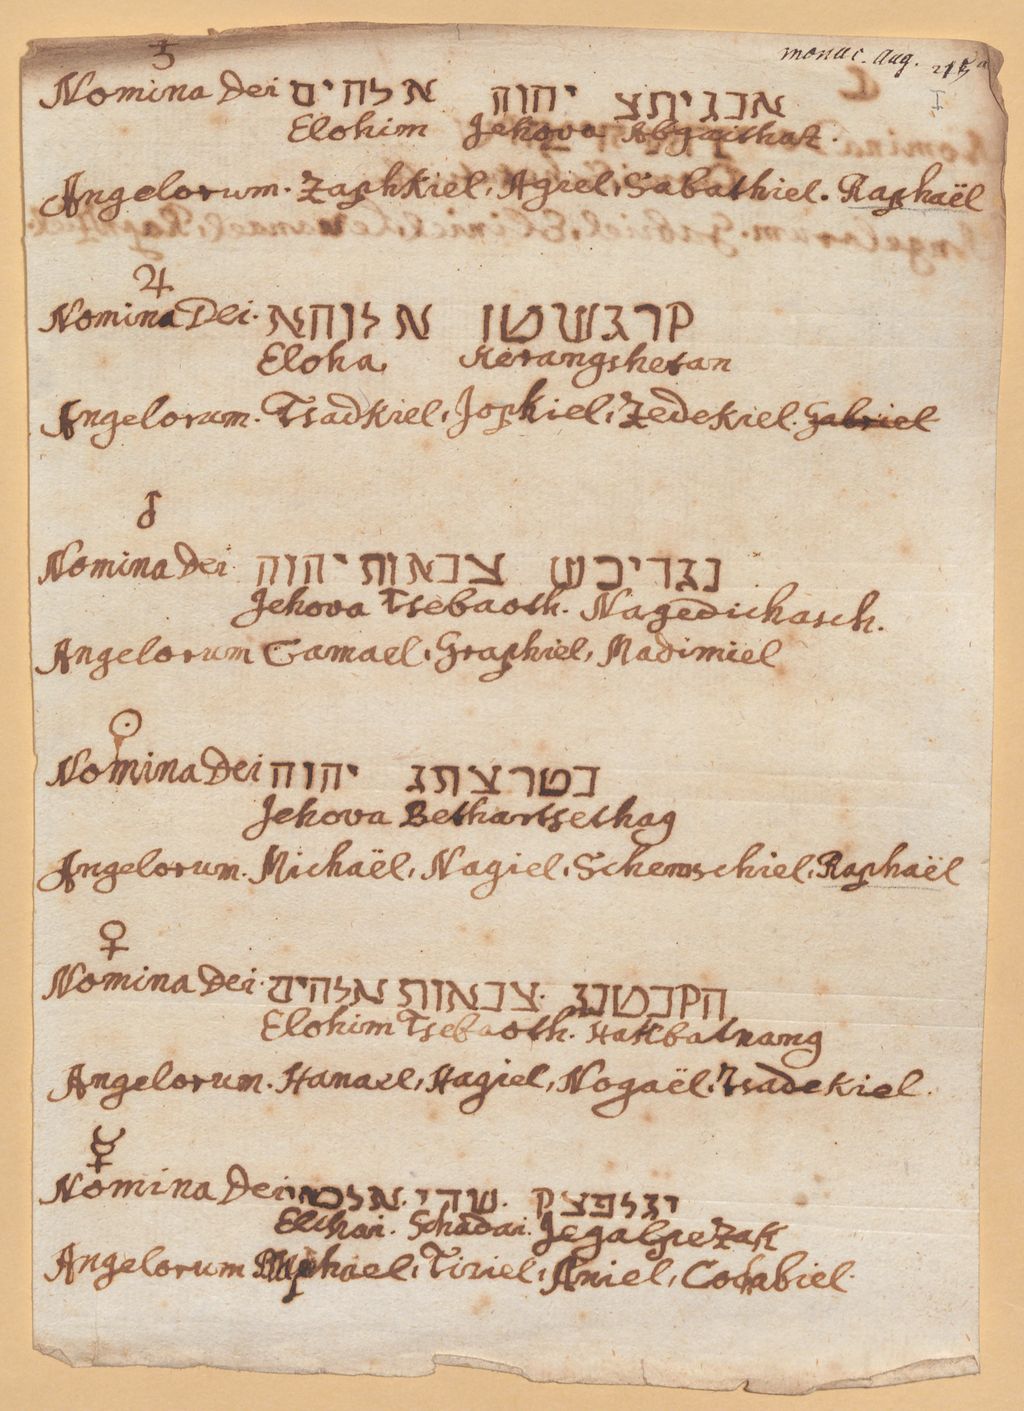 monac. Aug.
♄
Nomina Dei אלהים יהוה אבגיתצ
Elohim Jehova Abgaithaz.
Angelorum. Zaphkiel, Agiel, Sabathiel. Raphaël
♃
Nomina Dei. אלוהא קרגשטן
Eloha Kerangshetan
Angelorum. Tsadkiel, Jophiel, Zedekiel. Gabriel
♂
Nomina Dei יהוה צבאות נגדיכש
Jehova Tsebaoth. Nagedichasch.
Angelorum Camael, Graphiel, Madimiel
☉
Nomina Dei יהוה בטרצתג
Jehova Bethartsethag
Angelorum. Michaël, Nagiel, Schemschiel, Raphaël
♀
Nomina Dei. אלהים צבאות. הקבטנג
Elohim Tsebaoth. Hakbatnamg
Angelorum. Hanael, Hagiel, Nogaël, Tsadekiel.
☿
Nomina Dei יגלפצק
Elchai. Schadai. Jegalpezak
Angelorum Raphael, Tiriel, Aniel, Cochabiel.